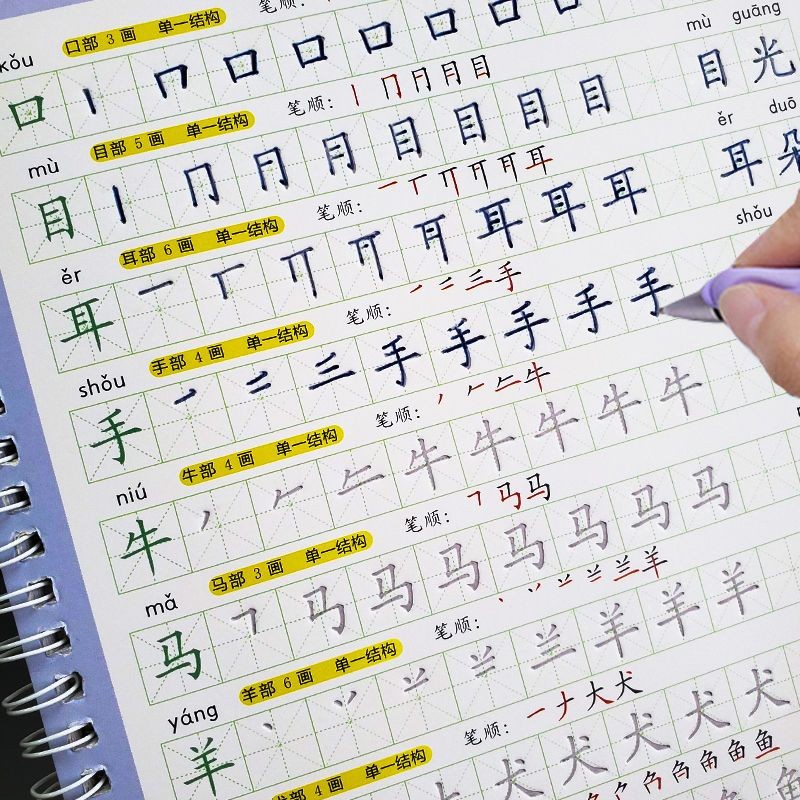 口部 3 画 单一结构 笔顺：
kǒu
口 丨 𠃍 口 口 口 口 口 口
目部 5 画 单一结构 笔顺： 丨 冂 月 月 目
mù mù guāng
目 丨 冂 月 月 目 目 目 目 目 光
耳部 6 画 单一结构 笔顺： 一 丅 丌 耳
ěr ěr duō
耳 一 丅 丌 耳 耳 耳 耳 朵
手部 4 画 单一结构 笔顺： 一 二 三 手
shǒu shǒu
手 一 二 三 手 手 手 手 手
牛部 4 画 单一结构 笔顺： 丿 𠂉 牛
niú
牛 丿 𠂉 牛 牛 牛 牛 牛
马部 3 画 单一结构 笔顺： ㇕ 马 马
mǎ
马 ㇕ 马 马 马 马 马 马 马
羊部 6 画 单一结构 笔顺： 丶 丷 羊
yáng
羊 丶 丷 羊 羊 羊
犬部 4 画 单一结构 笔顺： 一 ナ 大 犬
犬 犬 犬 犬 犬
鱼 鱼